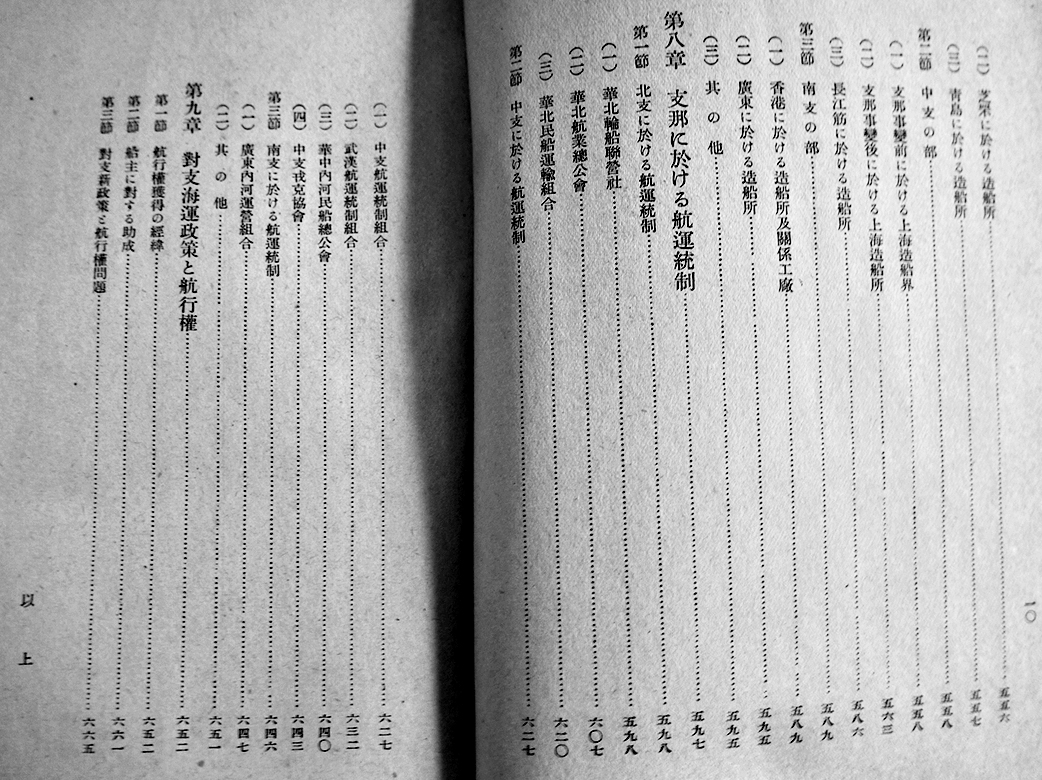 一〇
(二) 芝罘に於ける造船所……五五六
(三) 靑島に於ける造船所……五五七
第二節 中支の部……五五八
(一) 支那事變前に於ける上海造船界……五五八
(二) 支那事變後に於ける上海造船所……五六三
(三) 長江筋に於ける造船所……五八六
第三節 南支の部……五八九
(一) 香港に於ける造船所及關係工廠……五八九
(二) 廣東に於ける造船所……五九五
(三) 其の他……五九五
第八章 支那に於ける航運統制……五九七
第一節 北支に於ける航運統制……五九八
(一) 華北輪船聯營社……五九八
(二) 華北航業總公會……六〇七
(三) 華北民船運輸組合……六二〇
第二節 中支に於ける航運統制……六二七
(一) 中支航運統制組合……六二七
(二) 武漢航運統制組合……六三二
(三) 華中內河民船總公會……六四〇
(四) 中支戎克協會……六四三
第三節 南支に於ける航運統制……六四六
(一) 廣東內河運營組合……六四七
(二) 其の他……六五一
第九章 對支海運政策と航行權……六五二
第一節 航行權獲得の經緯……六五二
第二節 船主に對する助成……六六一
第三節 對支新政策と航行權問題……六六五
以上